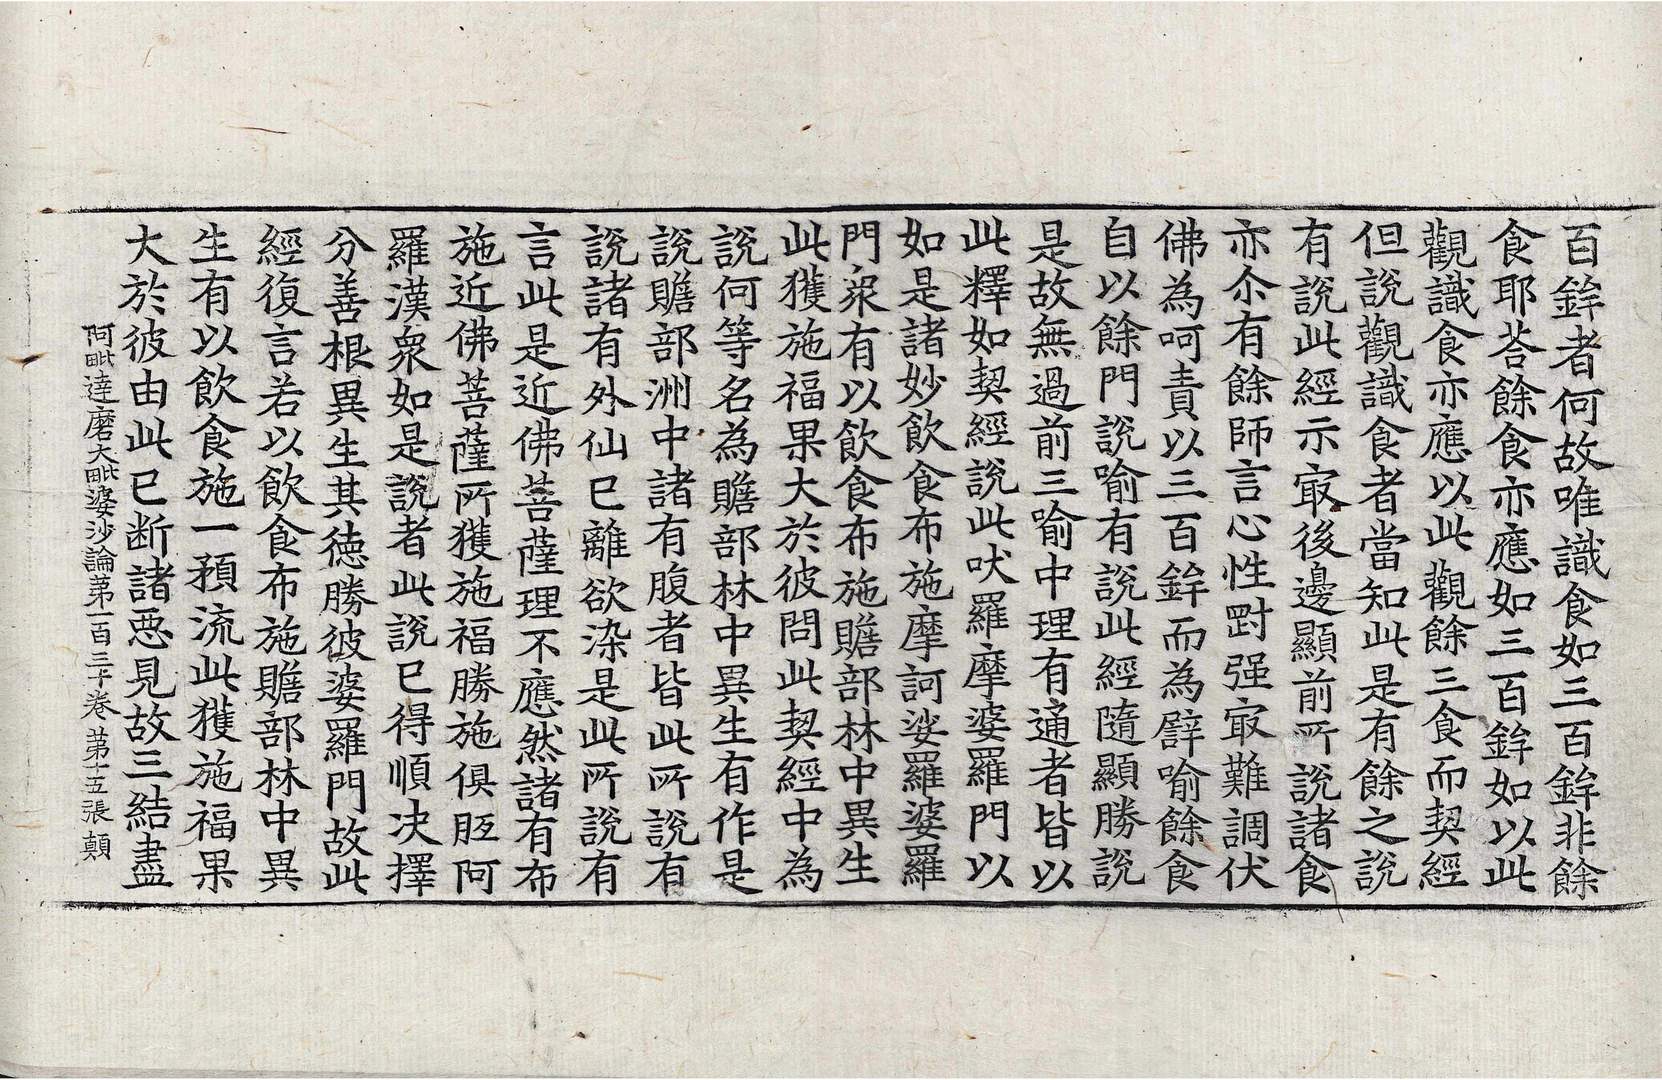 百鉾者何故唯識食如三百鉾非餘
食耶荅餘食亦應如三百鉾如以此
觀識食亦應以此觀餘三食而契經
但說觀識食者當知此是有餘之說
有說此經示冣後邊顯前所說諸食
亦尒有餘師言心性𠞰强冣難調伏
佛為呵責以三百鉾而為譬喻餘食
自以餘門說喻有說此經隨顯勝說
是故無過前三喻中理有通者皆以
此釋如契經說此吠羅摩婆羅門以
如是諸妙飲食布施摩訶娑羅婆羅
門衆有以飲食布施贍部林中異生
此獲施福果大於彼問此契經中為
說何等名為贍部林中異生有作是
說贍部洲中諸有腹者皆此所說有
說諸有外仙已離欲染是此所說有
言此是近佛菩薩理不應然諸有布
施近佛菩薩所獲施福勝施俱胝阿
羅漢衆如是說者此說已得順决擇
分善根異生其德勝彼婆羅門故此
經復言若以飲食布施贍部林中異
生有以飲食施一預流此獲施福果
大於彼由此已断諸惡見故三結盡
阿毗達磨大毗婆沙論第一百三十卷 第十五張 顛